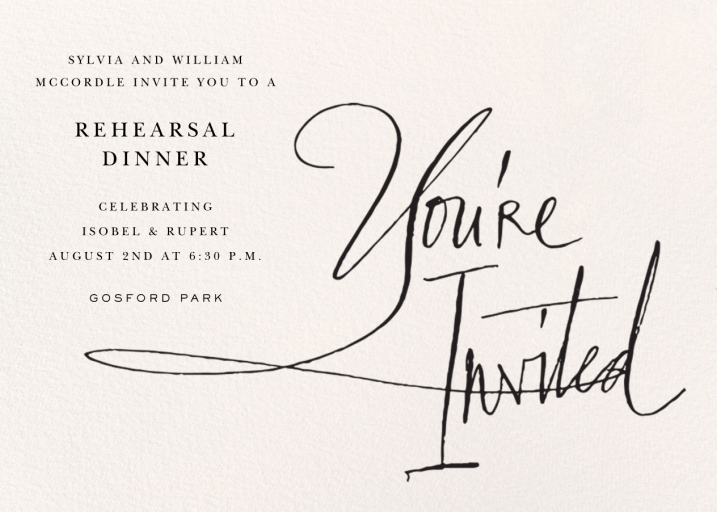 SYLVIA AND WILLIAM
MCCORDLE INVITE YOU TO A
REHEARSAL
DINNER
CELEBRATING
ISOBEL & RUPERT
AUGUST 2ND AT 6:30 P.M.
GOSFORD PARK
You're
Invited